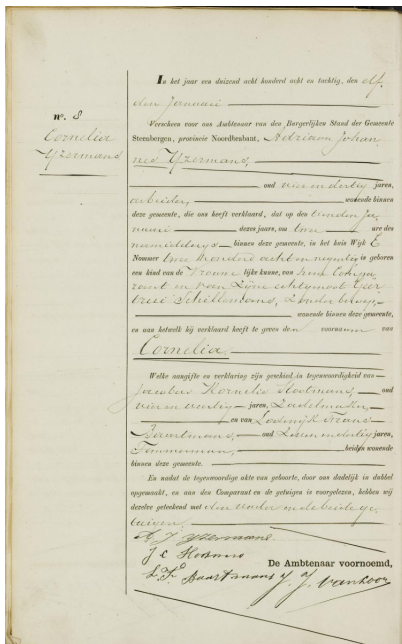 In het jaar een duizend acht honderd acht en tachtig, den elf
den Januari
Verscheen voor ons Ambtenaar van den Burgerlijken Stand der Gemeente
no. 8
Cornelia
Yzermans
Steenbergen, provincie Noordbrabant, Adriaan Johan
nes Yzermans,
oud vier en dertig jaren,
arbeider, wonende binnen
deze gemeente, die ons heeft verklaard, dat op den tienden Ja
nuari dezes jaars, om twee ure des
namiddags binnen deze gemeente, in het huis Wijk E
Nommer twee honderd acht en negentig is geboren
een kind van de Vrouwelijke kunne, van hem Compa
rant en van Zijne echtgenoot Geer
trui Schillemans, Zonder beroep,
wonende binnen deze gemeente,
en aan hetwelk hij verklaard heeft te geven den voornaam van
Cornelia.
Welke aangifte en verklaring zijn geschied in tegenwoordigheid van
Jacobus Kornelis Slootmans, oud
vier en veertig jaren, Zadelmaker,
en van Lodewijk Frans
Baartmans, oud Zeven en dertig jaren,
Timmerman, beiden wonende
binnen deze gemeente.
En nadat de tegenwoordige akte van geboorte, door ons dadelijk in dubbel
opgemaakt, en aan den Comparant en de getuigen is voorgelezen, hebben wij
dezelve geteekend met den vader en de beide ge
tuigen.
A J Yzermans.
J C Slootmans
De Ambtenaar voornoemd,
L. F. Baartmans J. J. van Loon